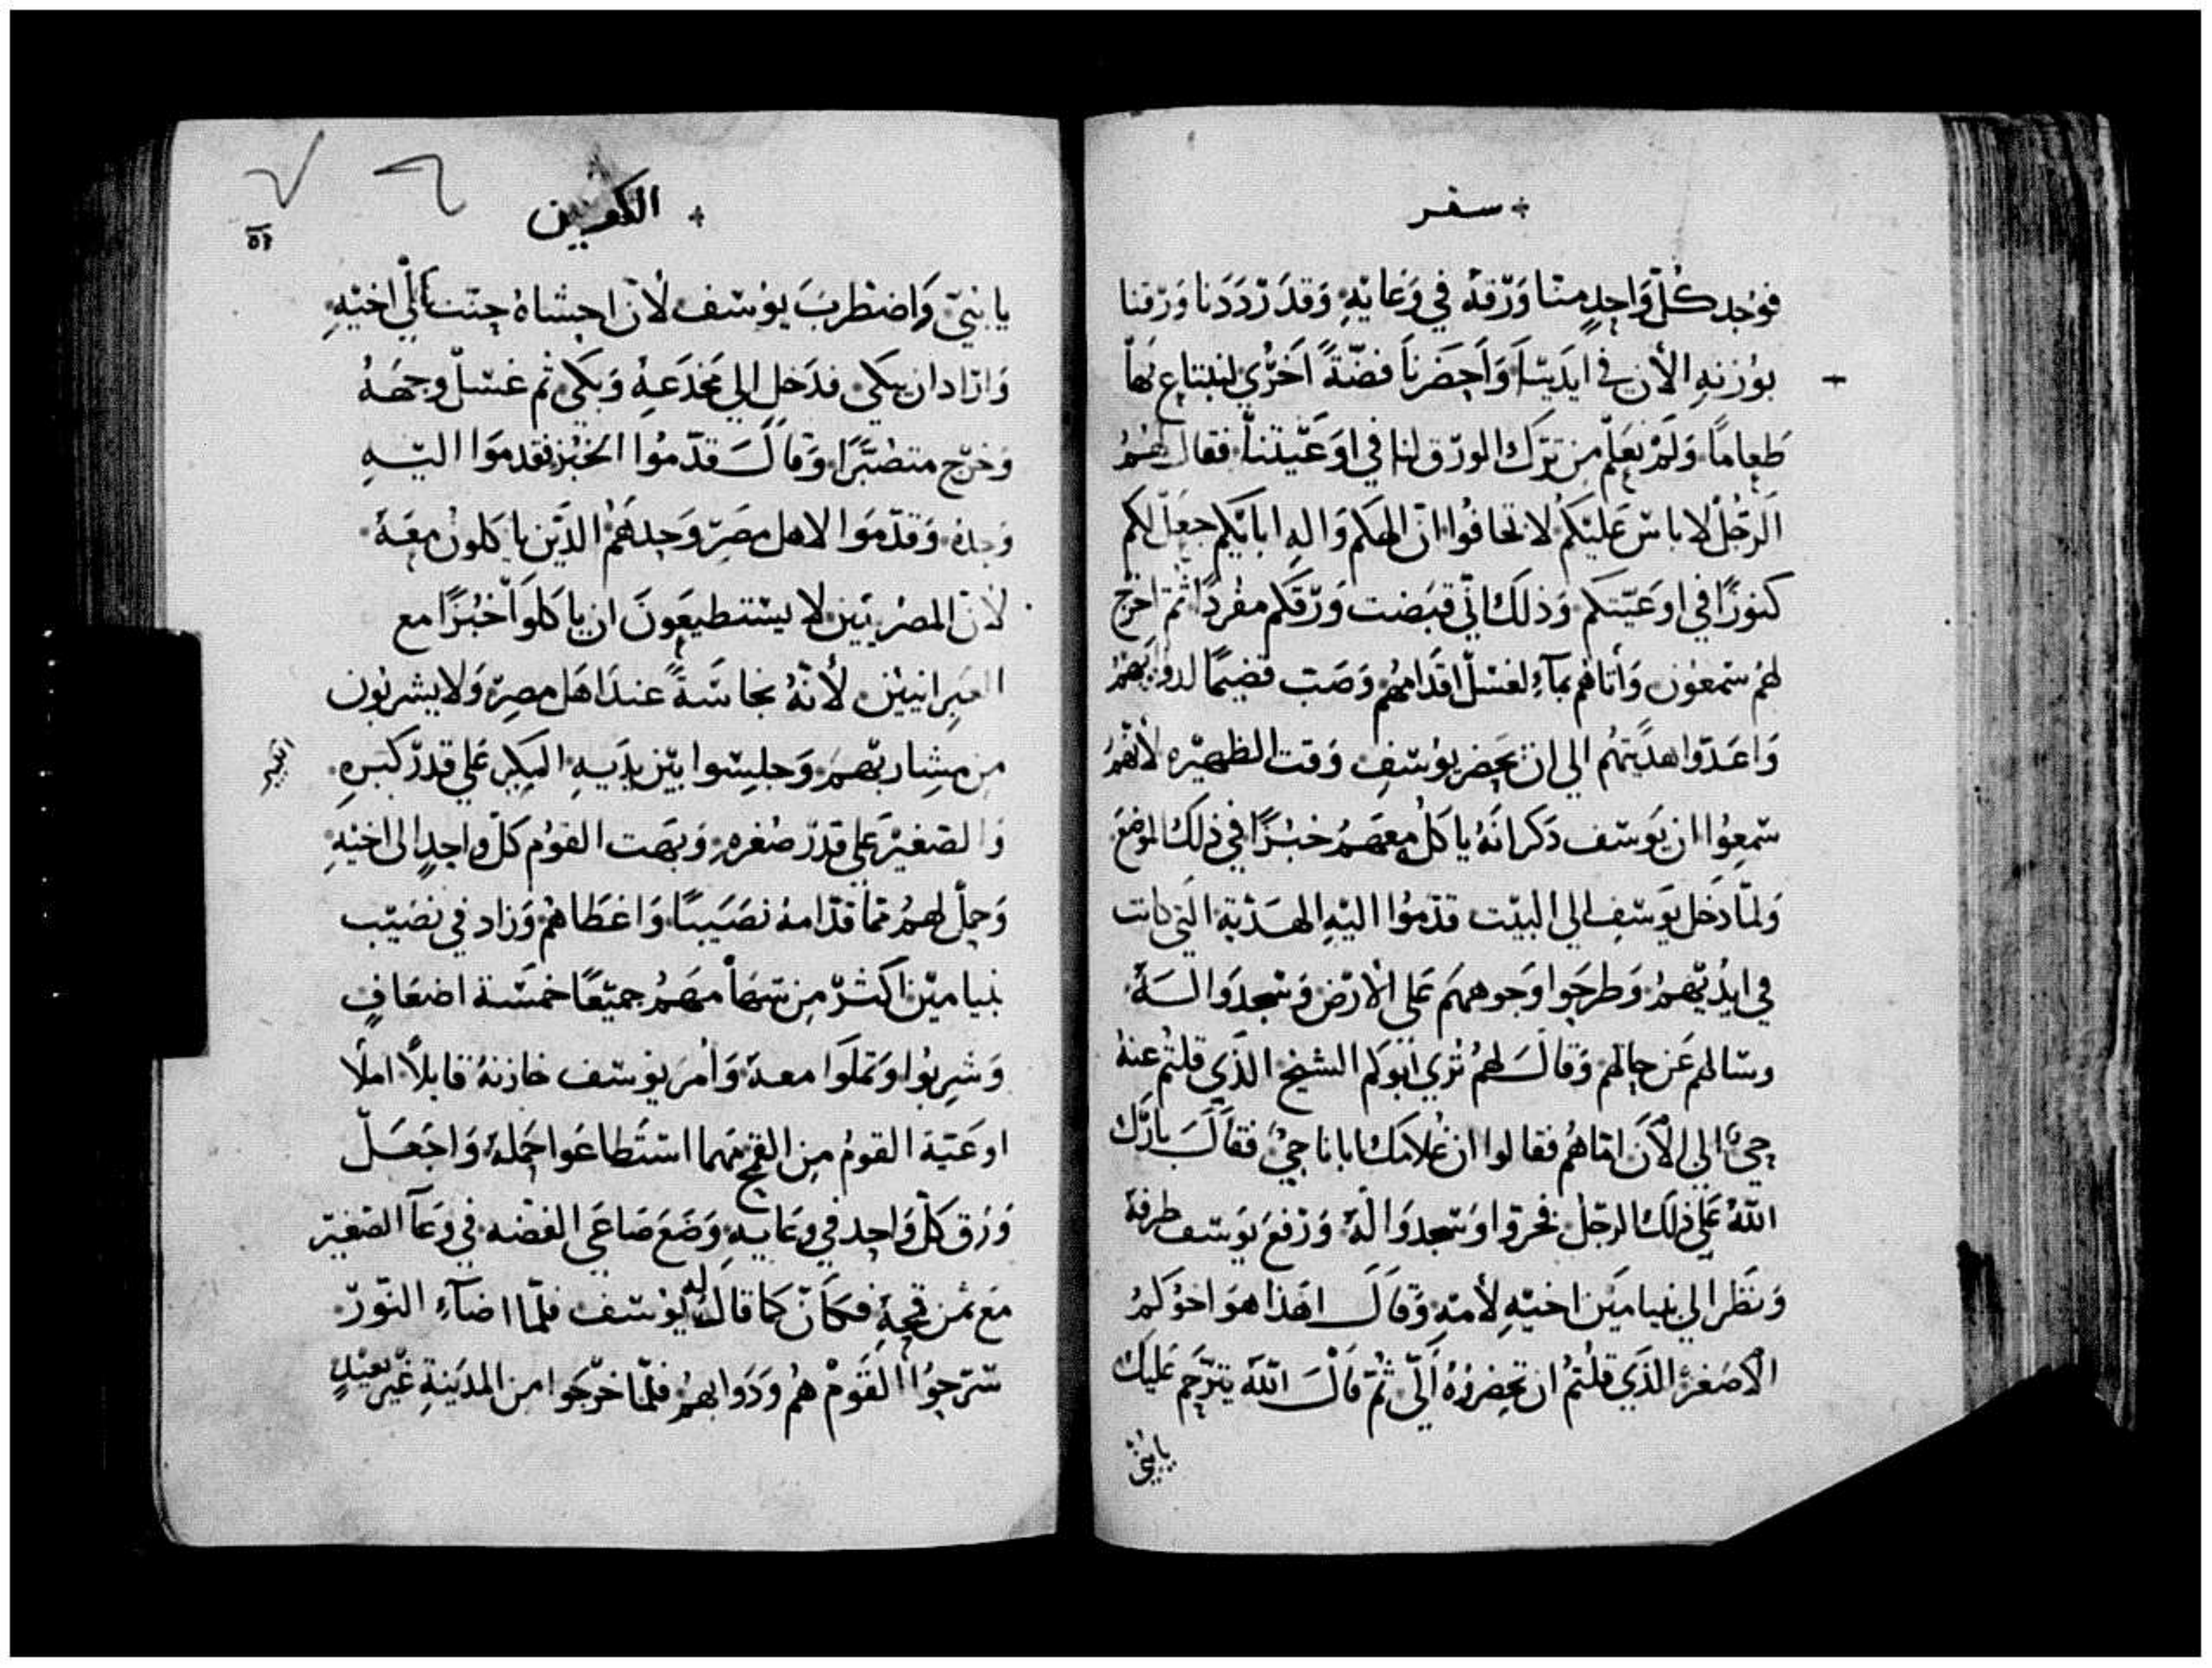 سفر
فوُجد كُلّ وَاحِدٍ منّا وَرّقهُ في وَعَايهِ وَقدَ رّدَدَنا وَرّقنا
بوُزنهِ الأن في ايدَينَا وَاَحِضَرنَا فضّةً اَخرُي لنبتاع بَهاّ
طَعِامًا وَلَمْ نعَلَم مِن تِرَك الورّق لنا في اوَعَيتنا فقال لهُمُ
اَلرّجُلُ لا باسّ عَليَكمُ لا تخافُوا انّ الهَكم وَالهِ ابايَكم جعَل لكم
كنوزًا في اوعَيّتكم وَذلكَ انّي قبَضت وَرّقكم مفُردًا ثمّ اخرّج
لهُم سّمعوُن وَأتاهُم بمآءِ لغسّل اقدَامهُم وَصَب قضيمًا لدوُابهَمُ
وَاعَدّوا هدَيتهُم الي ان يحِضر يوُسّفِ وَقت الظهيرَه لأنهُمُ
سّمعِوُا ان يوَسّف دَكر انَهُ ياكلُ مِعهَمُ خبُزًا في ذلكَ الموُضعَ
وَلمّا دَخل يوَسّفِ الي البيّت قدّموُا اليّهِ الهَدَيَة التَي كانت
في ايدُيّهمُ وَطرحَوا وَجوههمَ عَلى الارَضِ وَسّجدَوَا لهَ
وسّالهم عَن حِالهم وَقالَ لهُمُ تُرّي ابَوَكم الشيخ الذَي قلتُم عنهُ
حِيٌ الي الأَن امّا هُم فقالوا ان غُلامَكَ ابانا حِيٌ فقاَلَ بارَك
اللهُ عَلي ذلكَ الرجّل فخرّوا وَسّجدوَا لَهُ وَرّفعَ يوَسّف طرفهُ
وَنظَر الي بنيامَين اخيّهِ لأمهِ وَقاَلَ اهَذا هوَ اخوُكمُ
الأصَغرُ الذَي قلتُمُ ان تحِضِروُهُ اَليّ ثُمّ قاَلَ اللهَ يترَحم عَليَك
يابُنيَ
الكوين
٥٦
يابنيّ وَاضطَربَ يوُسّف لأنّ احِشاهُ حِنتَ الَي اخيَهِ
وَارّاد ان يبكَي فدَخل الي مَخدَعَهُ وَبكَي ثم غسّل وجهَهُ
وَخرّج متصَبّرًا وَقاَلَ قدّموُا الخبُز فقدموَا اليّهِ
وَحدهُ وَقدّموَا لاهل مصَرّ وَحِدهَمُ الذَيّن ياكلونُ معَهُ
لأنّ المصَريَين لا يسّتطيعَونَ ان ياكلوَا خبُزًا مع
العَبِرانيّين لأنّهُ نجاسَةً عندَ اهَل مصِر وَلا يشربُون
مِن مِشِاربّهمَ وَجلسِّوا بيّن يدَيهِ البكَر عَلي قدرّ كبَرهِ
الكبير
وَالصَغيَر عَلي قدرّ صُغرهِ وَبهَت القوُم كلّ واحِدٍ الى اخيّهِ
وَحمِل لهمُ ممّا قدّامهُ نصَيَبًا وَاعَطاهُم وَزاد في نصَيّب
بنيامَيّن اكثرّ مِن سّهَامهَمُ جميّعًا خمسّة اضعَافٍ
وَشرِبوُا وَتملوَا معهَ وَأمَر يوُسّف خازنهُ قايلاً املا
اوعَيّة القومُ مِن القمِح مَهما اسّتَطاعَوا حمِلهُ وَاجَعَل
وَرَق كلّ وَاحِد في وعَايهِ وَضعَ صَاعَي الفضّه في وعَآ الصَغيّر
معَ ثمن قمحِهِ فكاَنّ كما قال له يوُسّف فلمّا اضَآءِ النوّرّ
سّرّحِوُا القَوُمْ همُ وَدَوابهَمُ فلمّا خرّجَوا مِن المدَينة غَيرّ بعيَدٍ